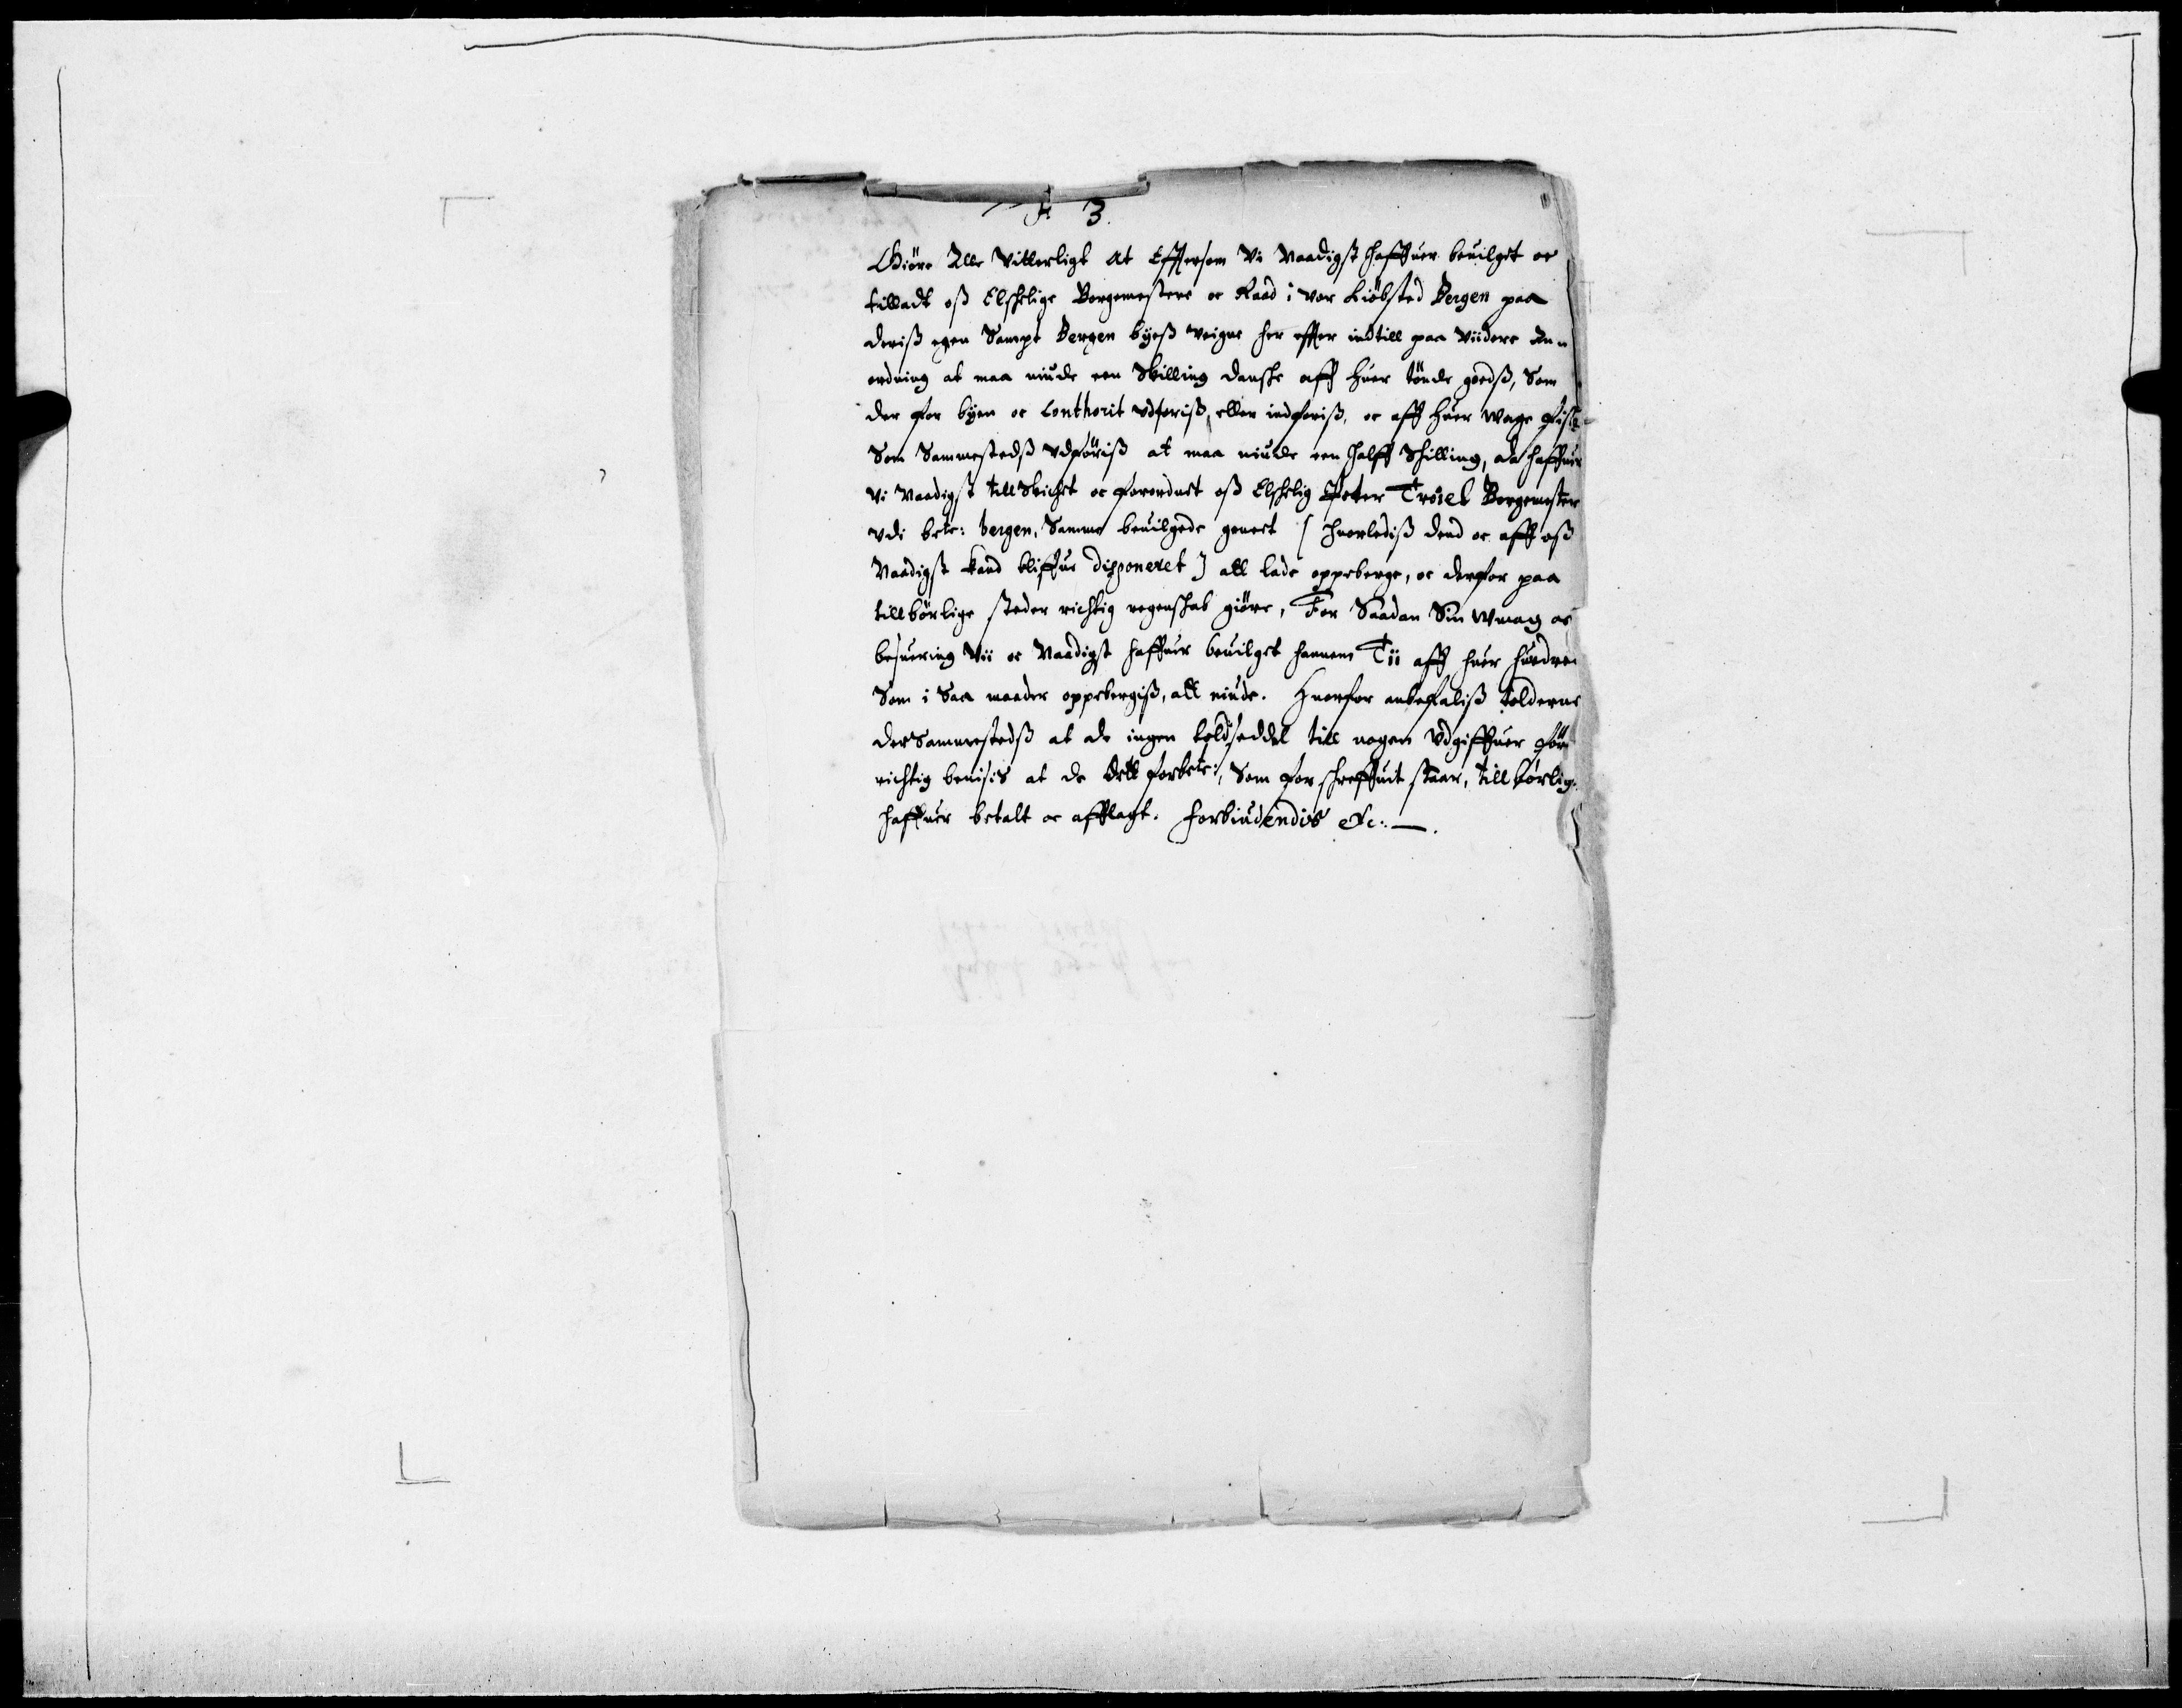 F: 3.
Giöre Alle Vitterligt At Efftersom Vi Naadigst haffuer beuilget oc
tilladt oß Elskelige Borgemestere oc Raad i vor kiöbsted Bergen paa
deriß egen Sampt Bergen byeß veigne her effter indtill paa viidere An¬
ordning at maa niude een Skilling danske aff huer tönde goedß, Som
der for byen oc Conthorit vdföriß, eller indföriß, oc aff huer wage fisk
Som Sammestedß vdföriß at maa niude een halff Skilling, da haffuer
Vi Naadigst tillskicket oc forordnet oß Elskelig Peter Troiel Borgemester
vdi bete: bergen, Samme beuilgede [ huorlediß dend oc aff oß
Naadigst kand bliffue disponeret ] att lade oppeberge, oc derfor paa
tillbörlige steder richtig regenskab giöre, For Saadan Sin Wmag oc
besuering Vii oc Naadigst haffuer beuilget hannem Tii aff huer hundrede
Som i Saa maader oppebergiß, att niude. Huorfor anbefaliß tolderne
der Sammestedß at de ingen toldseddel till nogen Vdgiffuer för
richtig beuisis at de dett forbete:, Som forskreffuit staar, tillbörlig:
haffuer betalt oc afflagt. Forbiudendis etc: —.